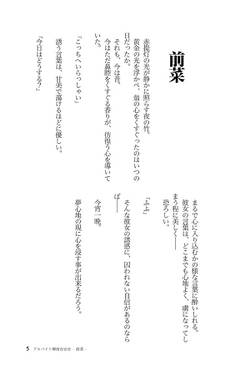 前菜
赤提灯の光が静かに照らす夜の竹。
黄金の光を浮かべ、翁の心をくすぐったのはいつの
日だったか。
それも、今は昔。
今はただ鼻腔をくすぐる香りが、彷徨う心を導いて
いた。
「こっちへいらっしゃい」
誘う言葉は、甘美で蕩けるほどに優しい。
「今日はどうする？」
まるで心に入り込むかの様な言葉に酔いしれる。
彼女の言葉は、どこまでも心地よく、虜になってし
まう程に美しく――
恐ろしい。
「ふふ」
そんな彼女の誘惑に、囚われない自信があるのなら
ば――
今宵一晩。
夢心地の現に心を浸す事が出来るだろう。
5 アルバイト華扇奮奮録 - 前菜 -